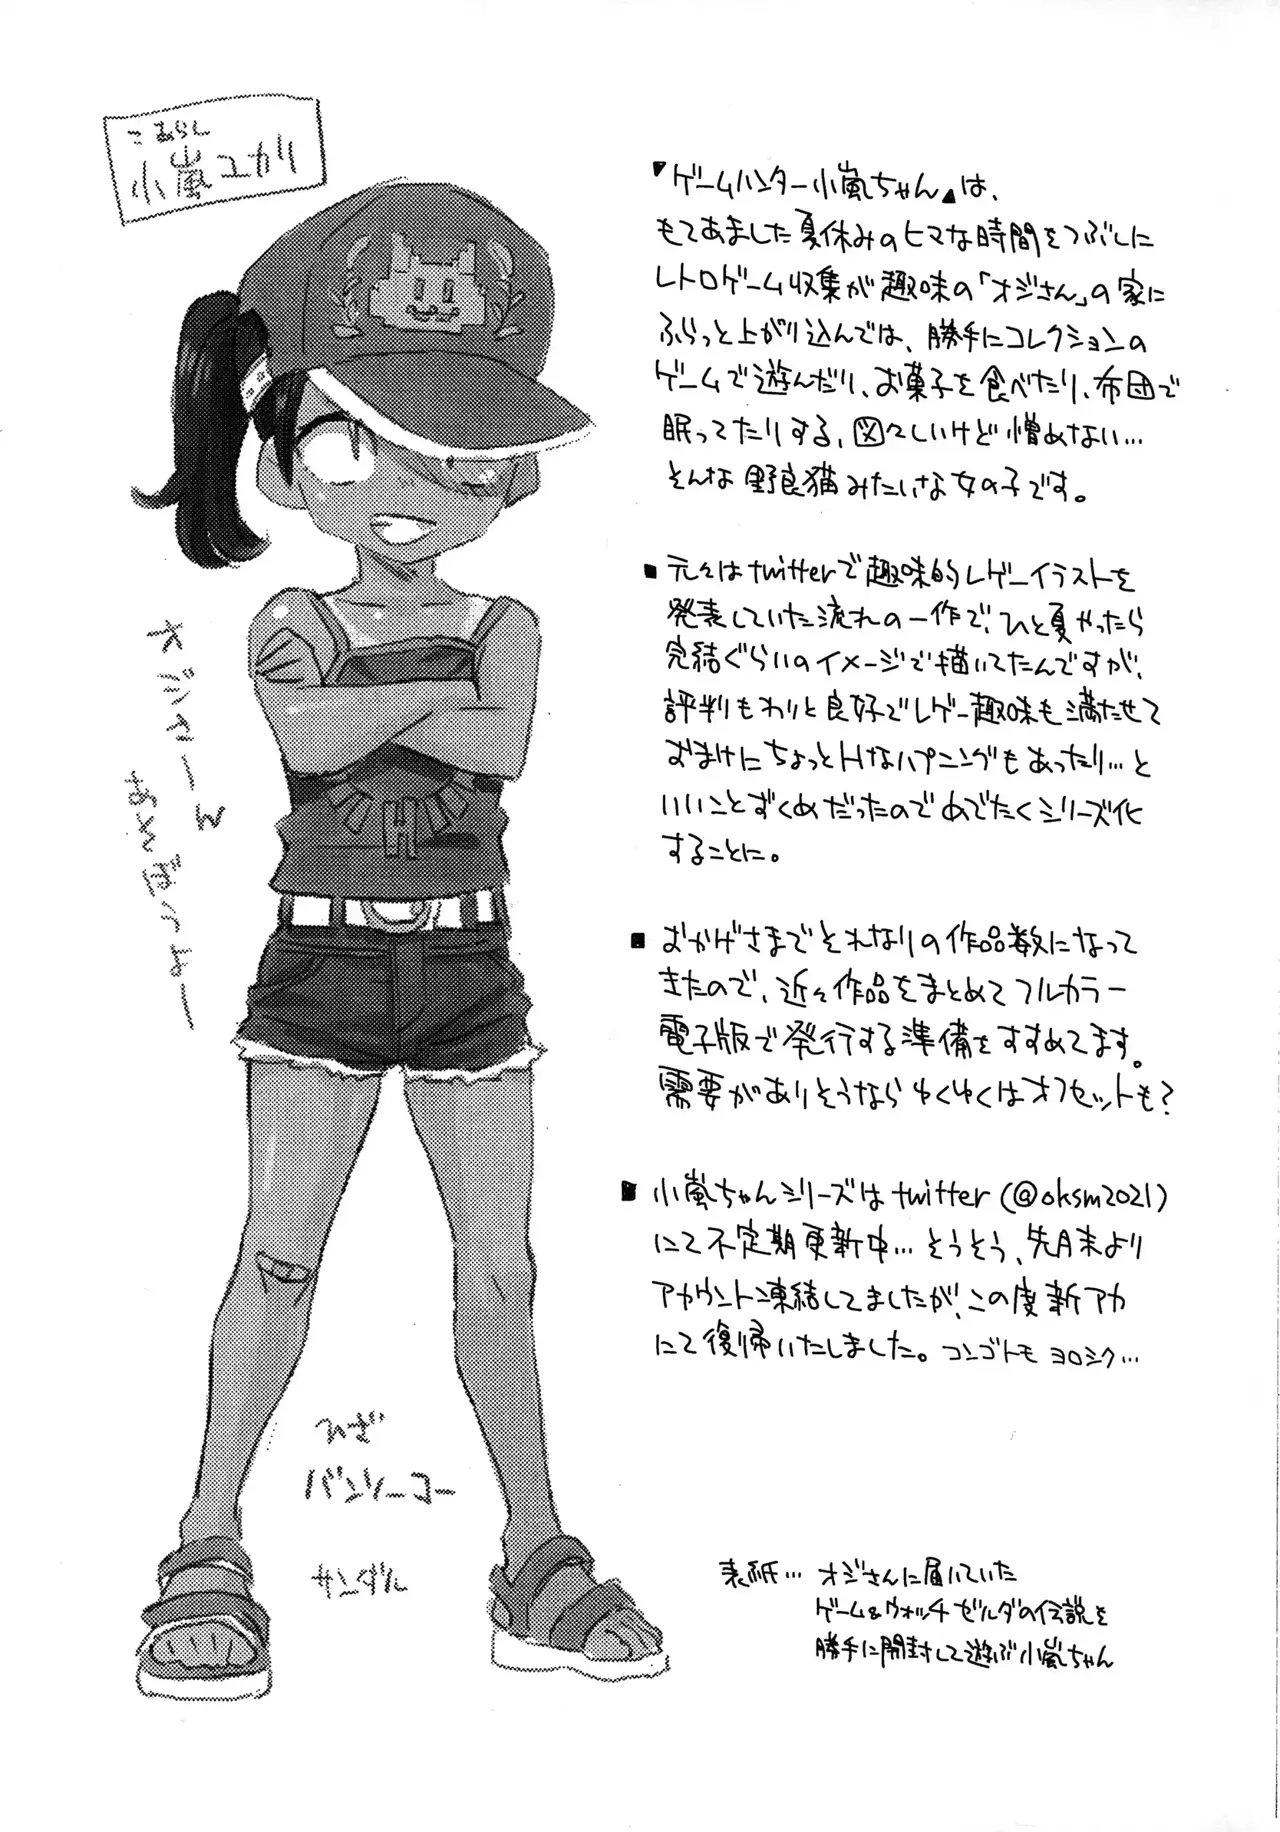 こあらし
小嵐ユカリ
オジさーん
あそぼうよー
ひざ
バンソーコー
サンダル
『ゲームハンター小嵐ちゃん』は、
もてあました夏休みのヒマな時間をつぶしに
レトロゲーム収集が趣味の「オジさん」の家に
ふらっと上がり込んでは、勝手にコレクションの
ゲームで遊んだり、お菓子を食べたり、布団で
眠ってたりする、図々しいけど憎めない…
そんな野良猫みたいな女の子です。
■元々はtwitterで趣味的レゲーイラストを
発表していた流れの一作で、ひと夏やったら
完結ぐらいのイメージで描いてたんですが、
評判もわりと良好でレゲー趣味も満たせて
おまけにちょっとHなハプニングもあったり…と
いいことずくめだったのでめでたくシリーズ化
することに。
■おかげさまでそれなりの作品数になって
きたので、近々作品をまとめてフルカラー
電子版で発行する準備をすすめてます。
需要がありそうならゆくゆくはオフセットも?
■小嵐ちゃんシリーズはtwitter(@oksm2021)
にて不定期更新中…そうそう、先月末より
アカウント凍結してましたが、この度新アカ
にて復帰いたしました。コンゴトモ ヨロシク…
表紙…オジさんに届いていた
ゲーム&ウォッチ ゼルダの伝説を
勝手に開封して遊ぶ小嵐ちゃん